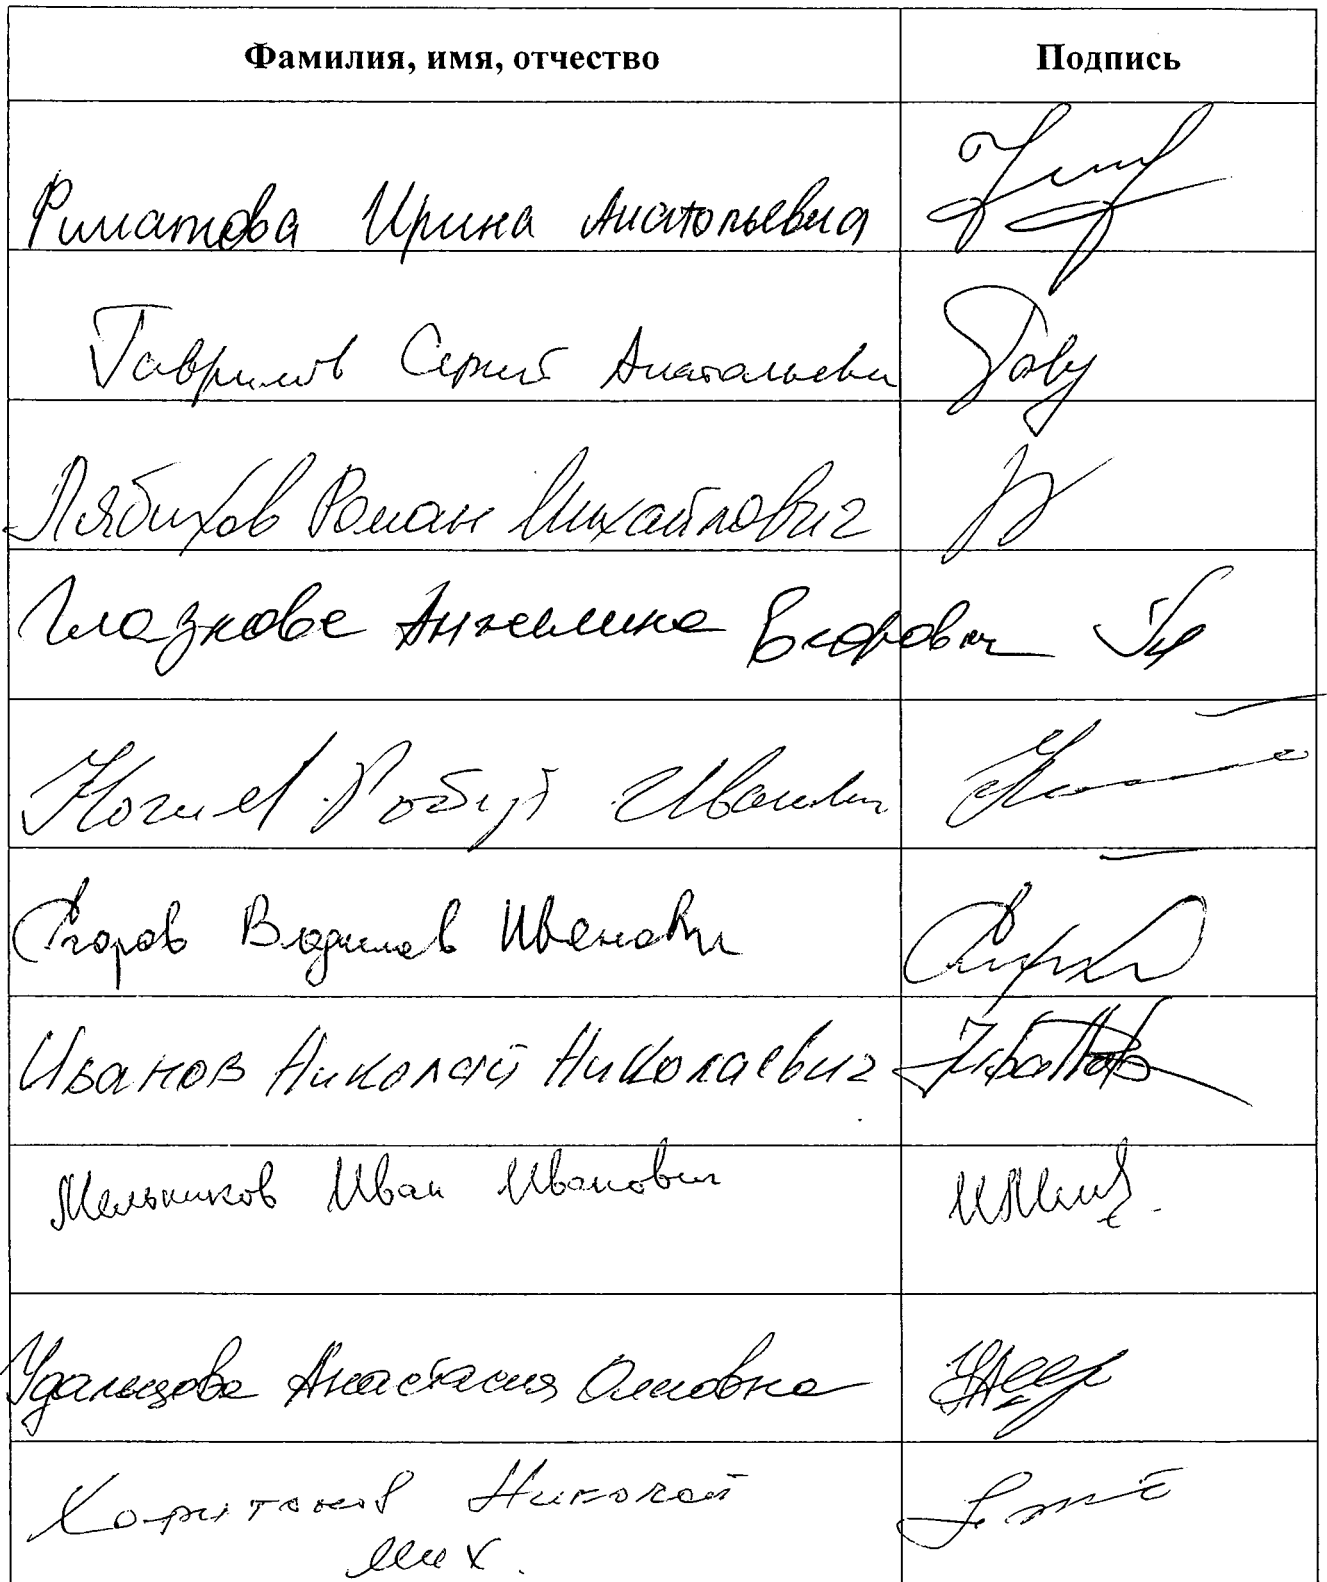 Фамилия, имя, отчество Подпись
Филатова Ирина Анатольевна
Гаврилов Сергей Анатольевич
Лябихов Роман Михайлович
Глазкова Ангелина Егоровна
Кочиев Роберт Иванович
Егоров Иванович
Иванов Николай Николаевич
Мельников Иван Иванович
Удальцова Анастасия Олеговна
Харитонов Николай
Мих.